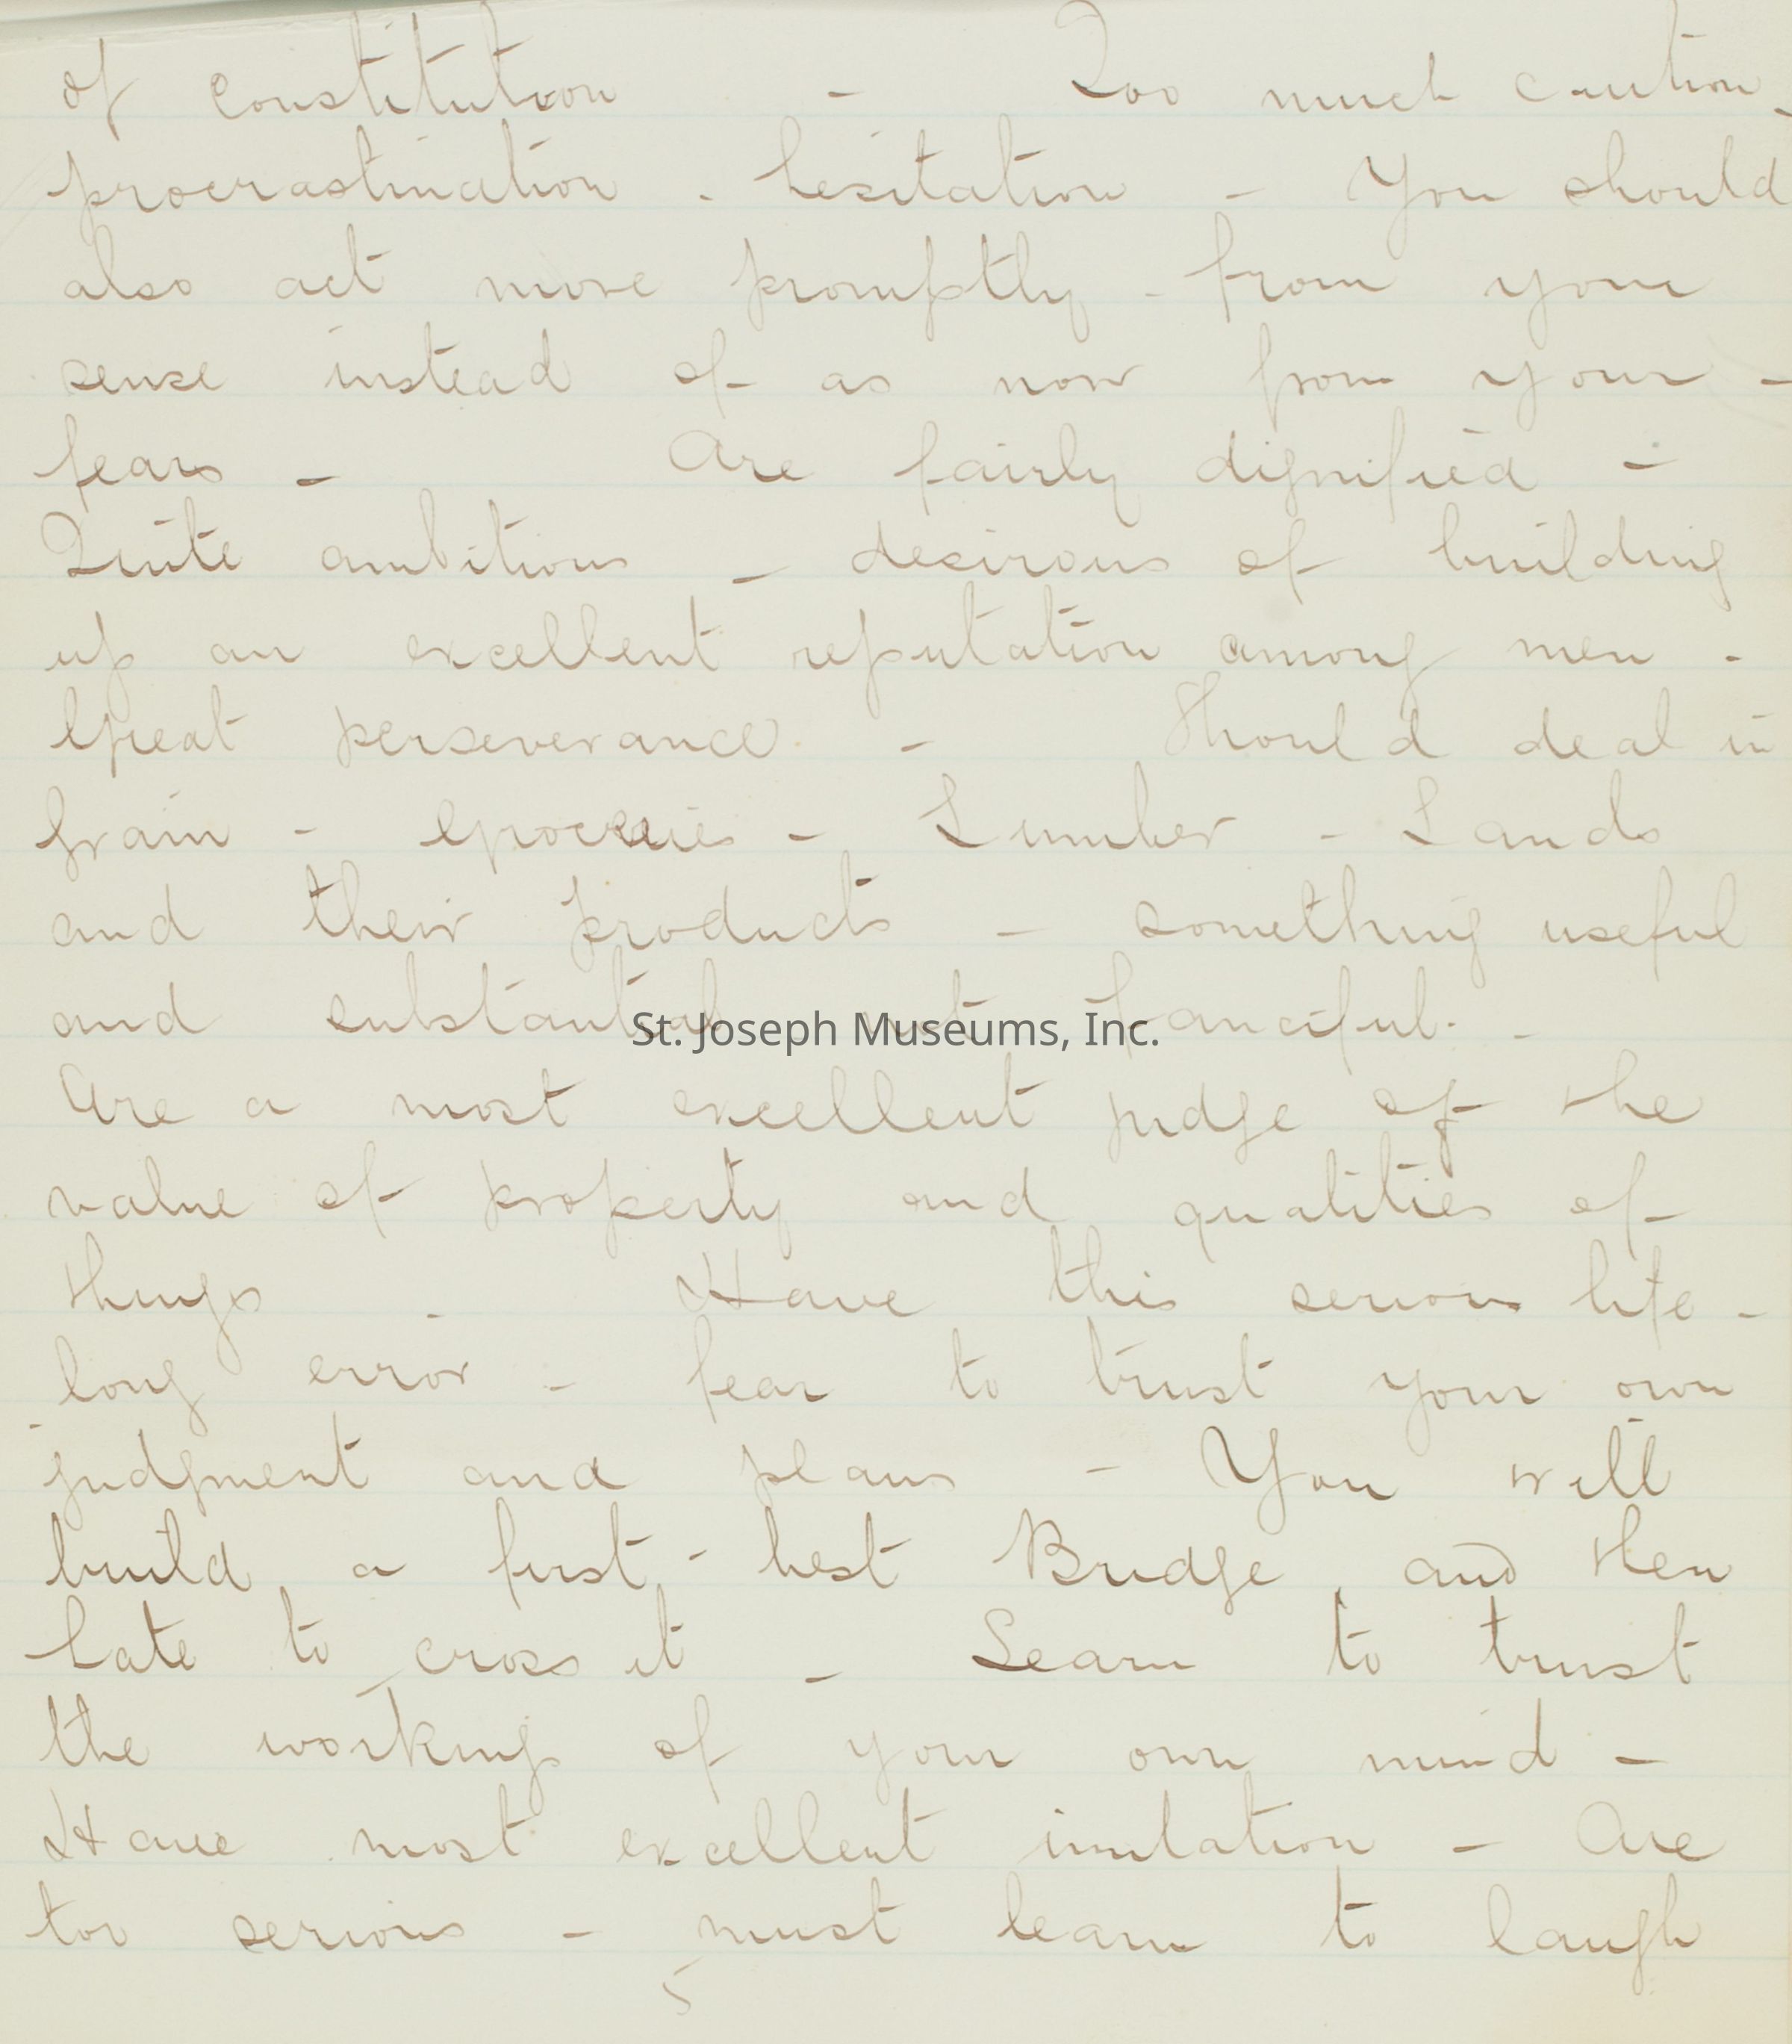 of Constitution - Too much caution -
procrastination - hesitation - You should
also act more promptly - from your
sense instead of as now from your -
fears - Are fairly dignified -
Quite ambitious - desirous of building
up an excellent reputation among men -
Great perseverance - Should deal in
Grain - Groceries - Lumber - Lands
and their products - something useful
and substantial not fanciful. -
St. Joseph Museums, Inc.
Are a most excellent judge of the
value of property and qualities of
things - Have this serious life -
long error - fear to trust your own
judgment and plans - You will
build a first - best Bridge, and then
hate to cross it - Learn to trust
the workings of your own mind -
Have most excellent imitation - Are
too serious - must learn to laugh
5